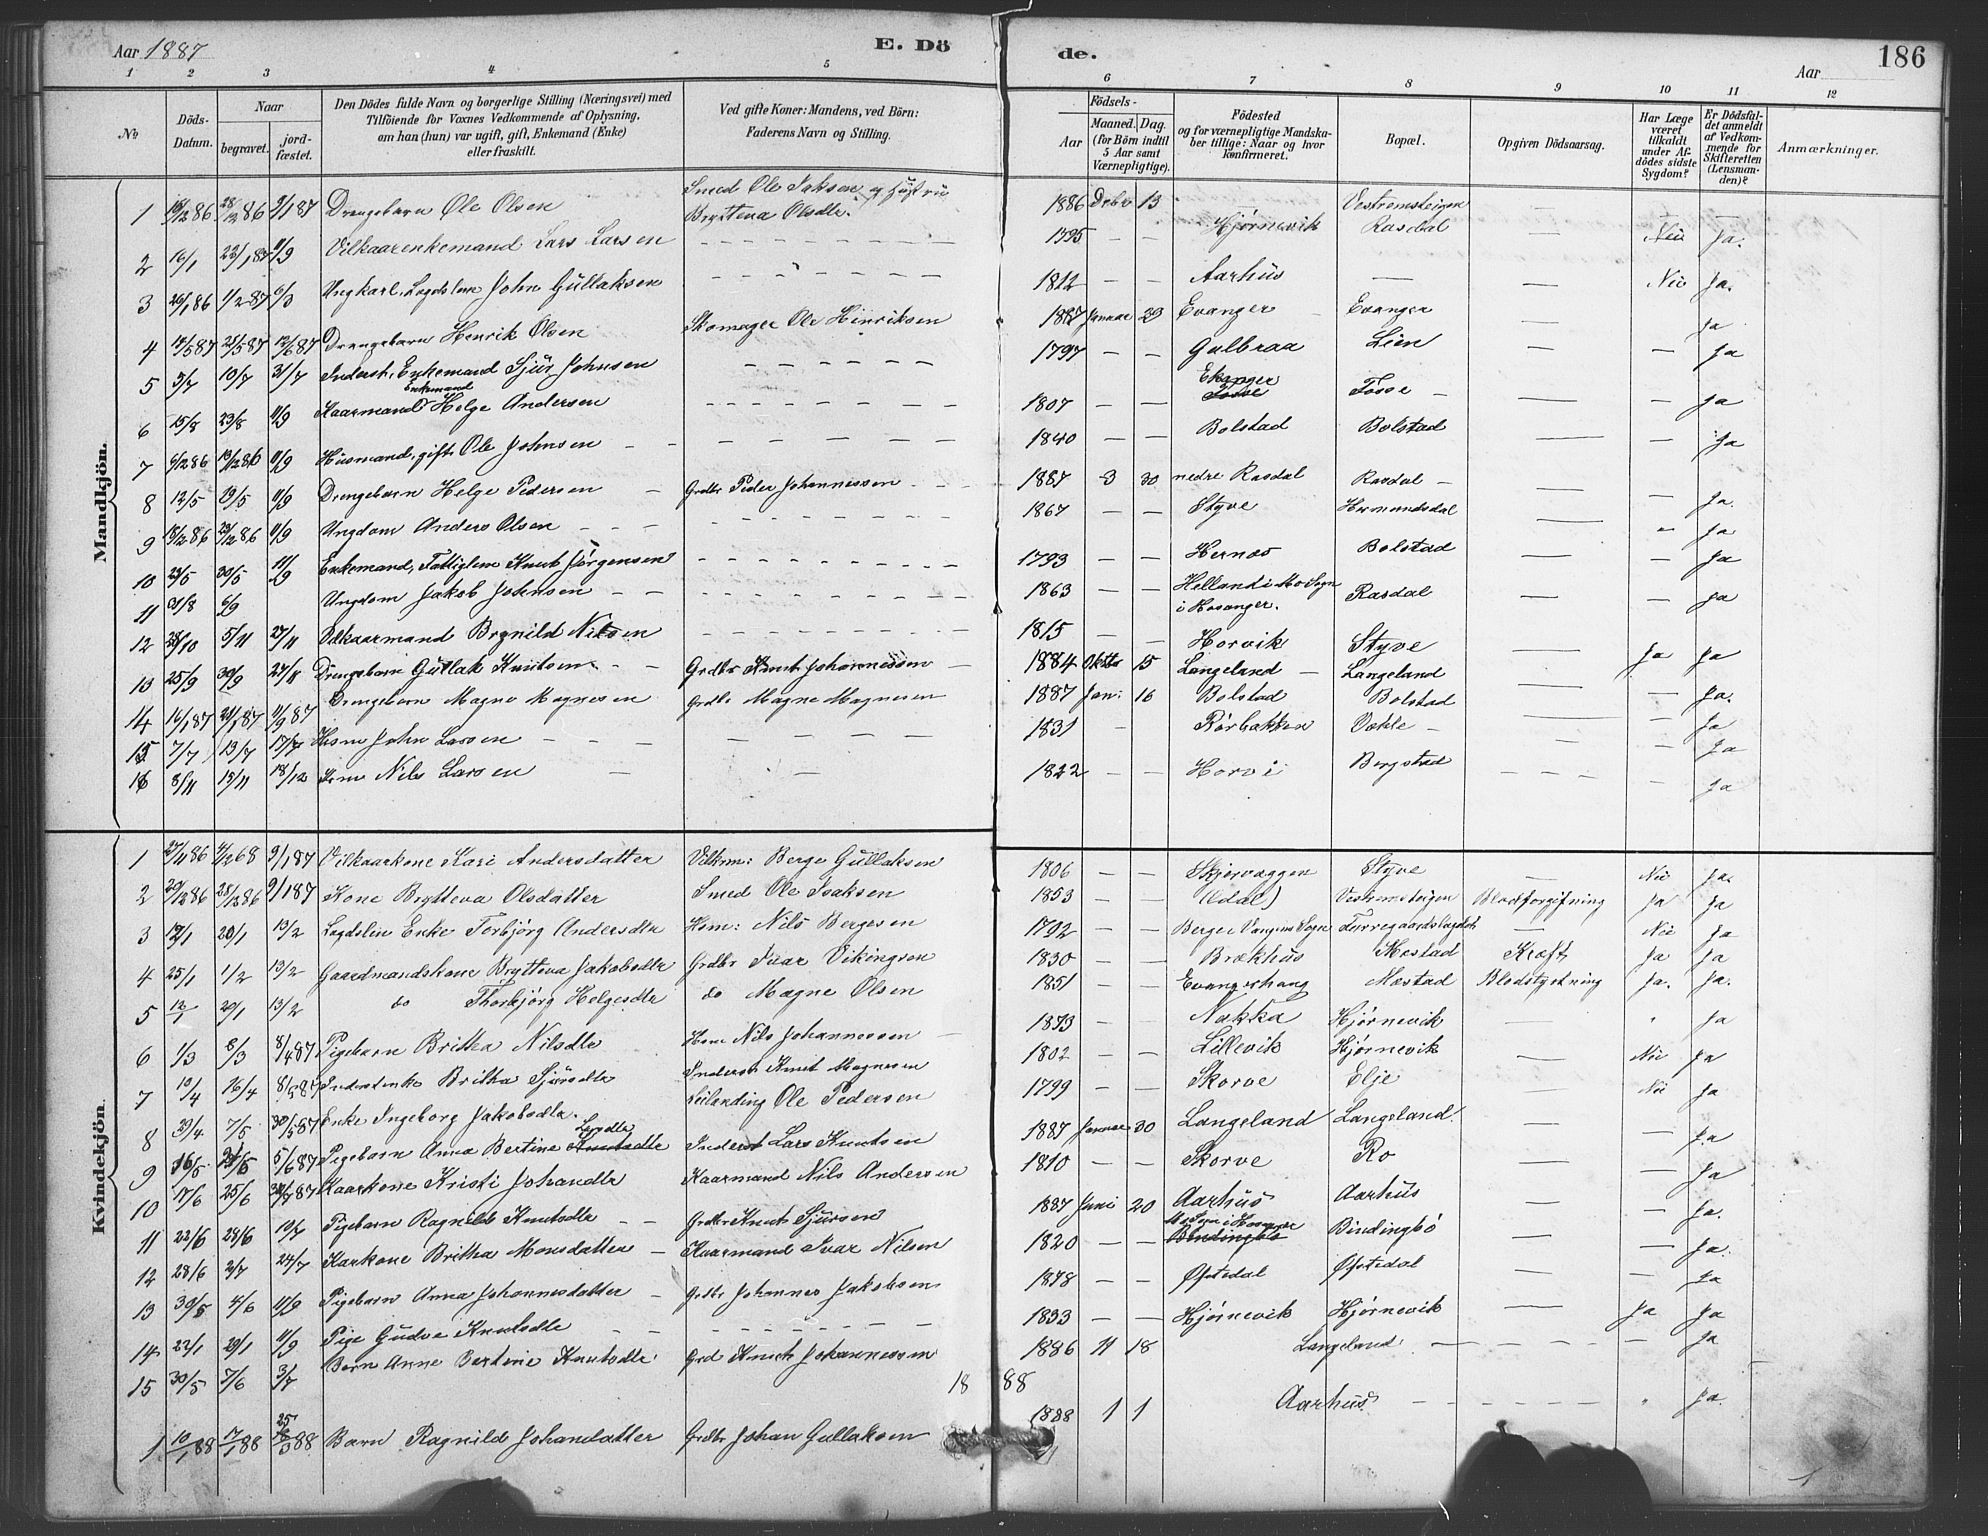 Aar 1887
E. Dö
de.
Aar
186
1 2 3 4 5 6 7 8 9 10 11 12
No
Döds-Datum.
Naar
begravet.
jord-fæstet.
Den Dödes fulde Navn og borgerlige Stilling (Næringsvei) med
Tilföiende for Voxnes Vedkommende af Oplysning,
om han (hun) var ugift, gift, Enkemand (Enke)
eller fraskilt.
Ved gifte Koner: Mandens, ved Börn:
Faderens Navn og Stilling.
Födsels-
Aar
Maaned. Dag.
(for Börn indtil
5 Aar samt
Værnepligtige).
Födested
og for værnepligtige Mandska-
ber tillige: Naar og hvor
konfirmeret.
Bopæl.
Opgiven Dödsaarsag.
Har Læge
været
tilkaldt
under Af-
dödes sidste
Sygdom?
Er Dödsfal-
det anmeldt
af Vedkom-
mende for
Skifteretten
(Lensman-
den)?
Anmærkninger.
Mandkjön.
1 18/12 86 28/12 86 9/1 87 Drengebarn Ole Olsen Smed Ole Isaksen og Hustru Brytteva Olsdtr. 1886 Debr 13 — Vestremsteigen — —
2 16/1 22/1 87 11/9 Vilkaarenkemand Lars Larsen — 1795 — — Hjørnevik Rasdal Nei Ja.
3 26/1 86 1/2 87 6/3 Ungkarl, Legdslem John Gullaksen — 1812 — — Aarhus — Nei Ja.
4 18/5 87 28/5 87 12/6 87 Drengebarn Henrik Olsen Skomager Ole Hinriksen 1887 Januar 29 Evanger Evanger — Ja
5 3/7 10/7 31/7 Inderst, Enkemand Sjur Johnsen — 1797 — — Gulbraa Lien — — Ja
6 15/8 23/8 11/9 Kaarmand Enkemand Helge Andersen — 1807 — — Ekanger Fosse Fosse — — Ja
7 6/12 86 13/12 86 11/9 Husmand, gift, Ole Johnsen — 1840 — — Bolstad Bolstad — Ja
8 12/5 29/5 11/9 Drengebarn Helge Pedersen Grdbr Peder Johannessen 1887 3 30 nedre Rasdal Rasdal — — Ja.
9 18/12 86 29/12 86 11/9 Ungdom Anders Olsen — 1867 — — Styve Hermundsdal — " Ja
10 23/5 30/5 11/9 Enkemand, Fattiglem Knut Jørgensen — 1793 — — Hernæs Bolstad — — Ja
11 31/8 6/9 Ungdom Jakob Johnsen — 1863 — — Helland i Mo Sogn i Hosanger. Rasdal — — Ja
12 28/10 5/11 27/11 Vilkaarmand Brynild Nilsen — 1815 — — Horvik Styve — Ja Ja
13 25/9 30/9 27/11 Drengebarn Gullak Knutsen Grdbr Knut Johannessen 1884 Oktbr 15 Langeland Langeland —
14 16/1 87 21/1 87 11/9 87 Drengebarn Magne Magnesen Grdbr Magne Magnesen 1887 Jan: 16 Bolstad Bolstad — — Ja.
15 7/7 13/7 17/7 Hsm John Larsen — 1831 — Rørbakken Vahle — — Ja
16 8/11 15/11 18/12 Nils Larsen — 1822 — — Horvi Bergstad — Ja
Kvindekjön.
1 27/11 86 4/12 68 9/1 87 Vilkaarkone Kari Andersdatter Vilkm: Berge Gullaksen 1806 — — Skjervæggen Styve — Nei Ja.
2 20/12 86 28/12 86 9/1 87 Kone Brytteva Olsdatter Smed Ole Isaksen 1853 — — (Edal) Vestremsteigen Blodforgiftning Ja Ja
3 12/1 20/1 13/2 Legdslem Enke Torbjørg Andersdtr Hsm: Nils Bergesen 1702 — — Berge i Vangens Sogn Nei Ja
4 25/1 1/2 13/2 Gaardmandskone Brytteva Jakobsdtr Grdbr Ivar Vikingsen 1830 — — Brækhus Mostad Kræft Ja Ja
5 12/1 20/1 13/2 do Thorbjørg Helgesdtr do Magne Olsen 1851 — — Evangerhaug Mæstad Blodstyrtning Ja. Ja.
6 1/3 8/3 8/4 87 Pigebarn Britha Nilsdtr Hsm Nils Johannessen 1873 — — Nakka Hjørnevik " Ja
7 10/4 16/4 8/5 87 Inderstenke Britha Sjursdtr Inderst Knut Magnesen 1802 — — Lillevik Hjørnevik Nei Ja
8 30/4 7/5 30/5 87 Enke Ingeborg Jakobsdtr. Leilænding Ole Pedersen 1799 — — Skorve Elje Nei Ja
9 16/5 5/6 87 Pigebarn Anna Bertine Knutsdtr Larsdtr Inderst Lars Knutsen 1887 Januar 30 Langeland Langeland — Ja
10 17/6 25/6 87 Kaarkone Kristi Johandtr Kaarmand Nils Andersen 1810 — — Skorve Ro — Ja
11 22/6 28/6 10/7 Pigebarn Ragnild Knutsdtr Grdbr Knut Sjursen 1887 Juni 20 Aarhus Aarhus — — Ja.
12 28/6 2/7 24/7 Karkone Britha Monsdatter Kaarmand Ivar Nilsen 1820 — — Mo Sogn i Hosanger Bindingbø Bindingbø — — Ja.
13 30/5 4/6 11/9 Pigebarn Anna Johannesdatter Grdbr Johannes Jakobsen 1878 — — Øfstedal Øfstedal — Ja
14 22/1 29/1 11/9 Pige Gudve Knutsdtr — 1833 — — Hjørnevik Hjørnevik — Ja Ja
15 30/5 7/6 3/7 Barn Anne Bertine Knutsdtr Grd Knut Johannessen 1886 11 18 Langeland — — Ja
18 88
1 10/1 88 17/1 88 25 88 Barn Ragnild Johandatter Grdbr Johan Gullaksen 1888 1 1 Aarhus " Ja